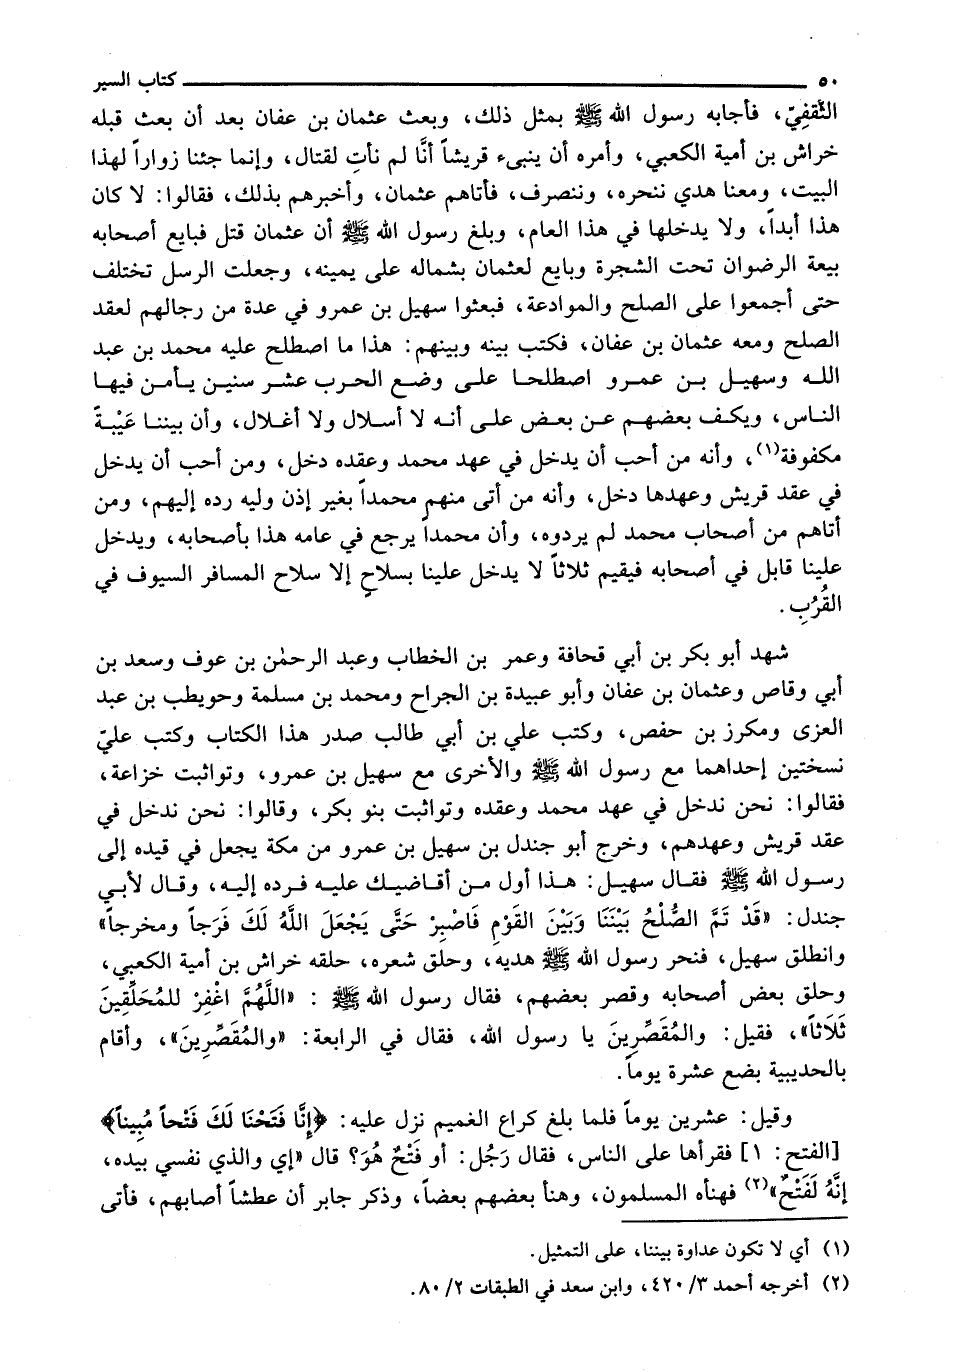 ٥٠ كتاب السير
الثَّقفِيّ، فأجابه رسول الله ﷺ بمثل ذلك، وبعث عثمان بن عفان بعد أن بعث قبله
خراش بن أمية الكعبي، وأمره أن ينبىء قريشاً أنَّا لم نأتِ لقتال، وإنما جئنا زواراً لهذا
البيت، ومعنا هدي ننحره، وننصرف، فأتاهم عثمان، وأخبرهم بذلك، فقالوا: لا كان
هذا أبداً، ولا يدخلها في هذا العام، وبلغ رسول الله ﷺ أن عثمان قتل فبايع أصحابه
بيعة الرضوان تحت الشجرة وبايع لعثمان بشماله على يمينه، وجعلت الرسل تختلف
حتى أجمعوا على الصلح والموادعة، فبعثوا سهيل بن عمرو في عدة من رجالهم لعقد
الصلح ومعه عثمان بن عفان، فكتب بينه وبينهم: هذا ما اصطلح عليه محمد بن عبد
الله وسهيل بن عمرو اصطلحا على وضع الحرب عشر سنين يأمن فيها
الناس، ويكف بعضهم عن بعض على أنه لا أسلال ولا أغلال، وأن بيننا عَيْبةً
مكفوفة(١)، وأنه من أحب أن يدخل في عهد محمد وعقده دخل، ومن أحب أن يدخل
في عقد قريش وعهدها دخل، وأنه من أتى منهم محمداً بغير إذن وليه رده إليهم، ومن
أتاهم من أصحاب محمد لم يردوه، وأن محمداً يرجع في عامه هذا بأصحابه، ويدخل
علينا قابل في أصحابه فيقيم ثلاثاً لا يدخل علينا بسلاحٍ إلا سلاح المسافر السيوف في
القُرُبِ.
شهد أبو بكر بن أبي قحافة وعمر بن الخطاب وعبد الرحمٰن بن عوف وسعد بن
أبي وقاص وعثمان بن عفان وأبو عبيدة بن الجراح ومحمد بن مسلمة وحويطب بن عبد
العزى ومكرز بن حفص، وكتب علي بن أبي طالب صدر هذا الكتاب وكتب عليّ
نسختين إحداهما مع رسول الله ﷺ والأخرى مع سهيل بن عمرو، وتواثبت خزاعة،
فقالوا: نحن ندخل في عهد محمد وعقده وتواثبت بنو بكر، وقالوا: نحن ندخل في
عقد قريش وعهدهم، وخرج أبو جندل بن سهيل بن عمرو من مكة يجعل في قيده إلى
رسول الله ﷺ فقال سهيل: هذا أول من أقاضيك عليه فرده إليه، وقال لأبي
جندل: «قَدْ تَمَّ الصُّلْحُ بَيْنَنَا وَبَيْنَ القَوْمِ فَاصْبِرْ حَتَّى يَجْعَلَ اللَّهُ لَكَ فَرَجاً ومخرجاً»
وانطلق سهيل، فنحر رسول الله ﷺ هديه، وحلق شعره، حلقه خراش بن أمية الكعبي،
وحلق بعض أصحابه وقصر بعضهم، فقال رسول الله ﷺ : «اللَّهُمَّ اغْفِرْ للمُحَلِّقِينَ
ثَلَاثاً»، فقيل: والمُقَصِّرِينَ يا رسول الله، فقال في الرابعة: «والمُقَصِّرِينَ»، وأقام
بالحديبية بضع عشرة يوماً.
وقيل: عشرين يوماً فلما بلغ كراع الغميم نزل عليه: ﴿إِنَّا فَتَحْنَا لَكَ فَتْحاً مُبِيناً﴾
[الفتح: ١] فقرأها على الناس، فقال رَجُل: أو فَتْحٌ هُوَ؟ قال «إي والذي نفسي بيده،
إِنَّهُ لَفَتْحٌ»(٢) فهنأه المسلمون، وهنأ بعضهم بعضاً، وذكر جابر أن عطشاً أصابهم، فأتى
(١) أي لا تكون عداوة بيننا، على التمثيل.
(٢) أخرجه أحمد ٣/ ٤٢٠، وابن سعد في الطبقات ٢/ ٨٠.